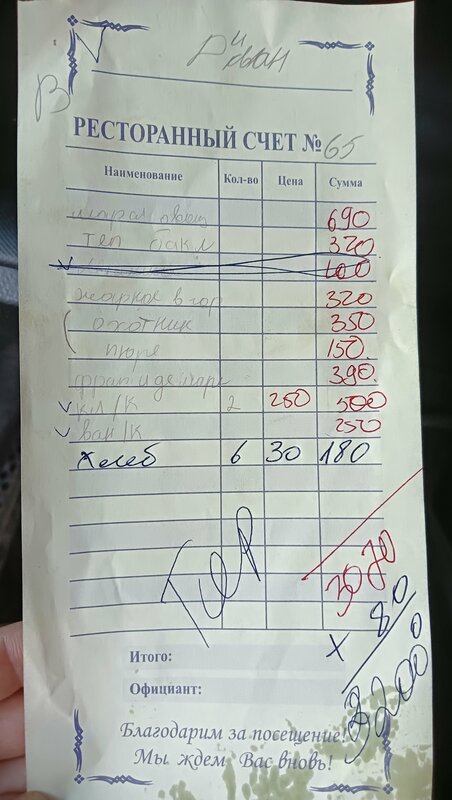 РЕСТОРАННЫЙ СЧЕТ № 65
Наименование Кол-во Цена Сумма
690
теп бакл 320
400
жаркое в гор 320
охотник 350
пюре 150.
390.
кл/к 2 250 500
ван/к 250
хлеб 6 30 180
Тер
3070
× 80
3200
Итого:
Официант:
Благодарим за посещение!
Мы ждем Вас вновь!